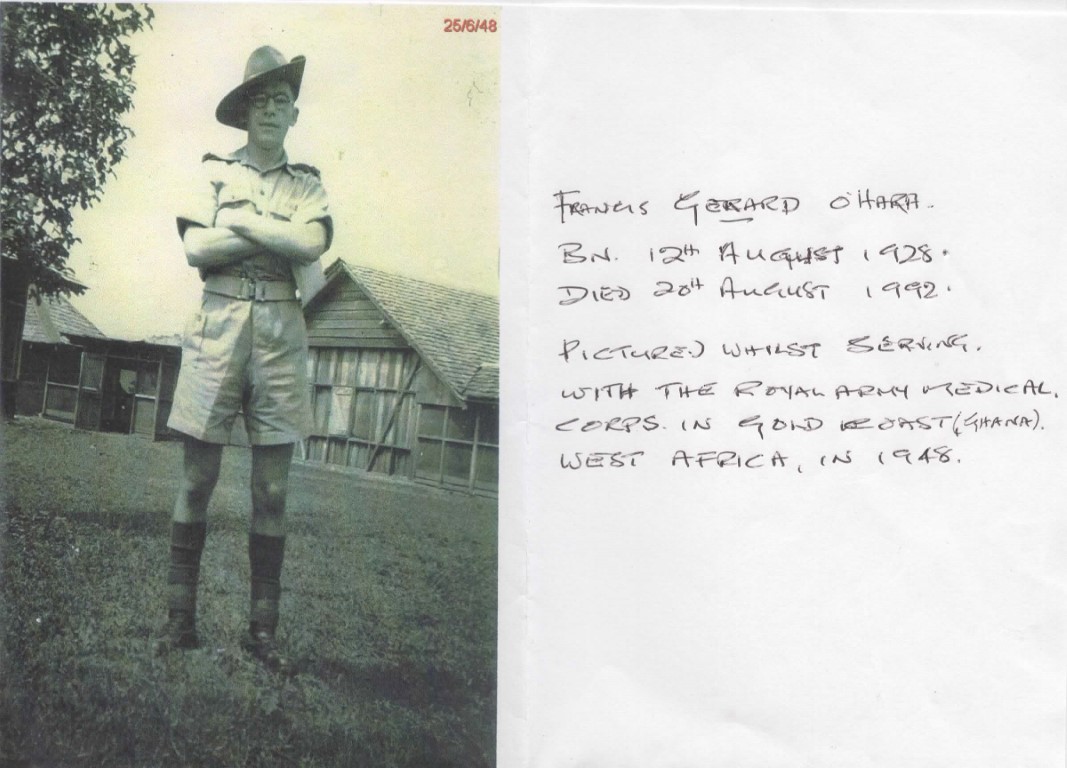 25/6/48
FRANCIS GERARD O'HARA.
BN. 12TH AUGUST 1928.
DIED 20TH AUGUST 1992.
PICTURE.) WHILST SERVING.
WITH THE ROYAL ARMY MEDICAL.
CORPS. IN GOLD COAST (GHANA).
WEST AFRICA, IN 1948.